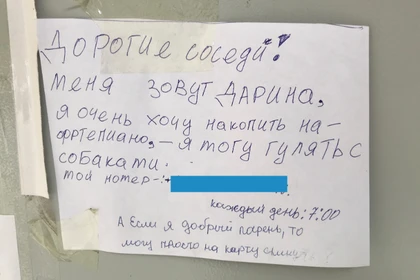 Дорогие соседи!
меня зовут ДАРИНА,
я очень хочу накопить на-
фортепиано,-я могу гулять с
собаками.
мой номер-:
каждый день: 7:00
А Если я добрый парень, то
могу просто на карту